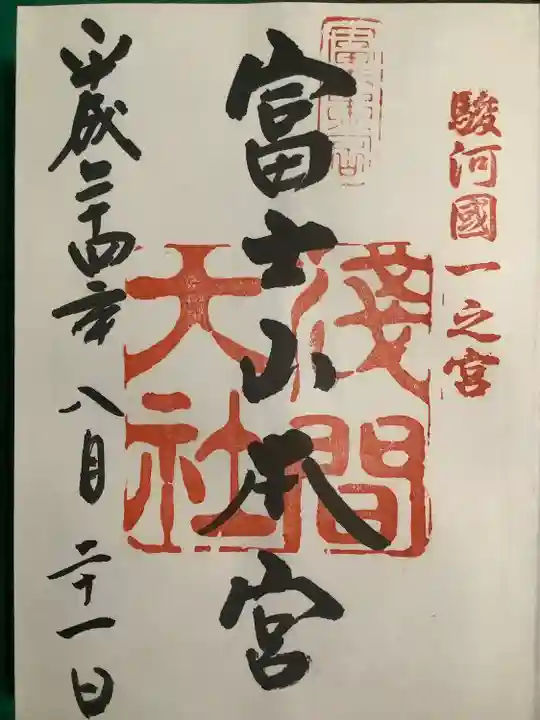 駿河國一之宮
富士山本宮
淺間
大社
平成二十四年八月二十一日